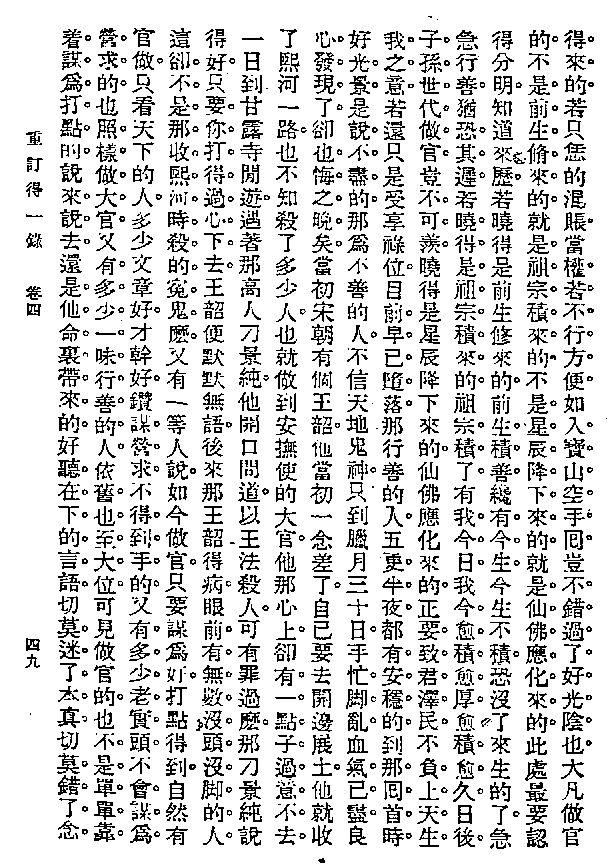 得來的若只恁的混賬當權若不行方便如入寶山空手回豈不錯過了好光陰也大凡做官
的不是前生脩來的就是祖宗積來的不是星辰降下來的就是仙佛應化來的此處最要認
得分明知道來歷若曉得是前生修來的前生積善纔有今生今生不積恐沒了來生的了急
急行善猶恐其遲若曉得是祖宗積來的祖宗積了有我今日我今愈積愈厚愈積愈久日後
子孫世代做官豈不可羨曉得是星辰降下來的仙佛應化來的正要致君澤民不負上天生
我之意若還只是受享祿位目前早已墮落那行善的人五更半夜都有安穩的到那回首時
好光景是說不盡的那為不善的人不信天地鬼神只到臘月三十日手忙脚亂血氣已盡良
心發現了卻也悔之晚矣當初宋朝有個王韶他當初一念差了自己要去開邊展土他就收
了熙河一路也不知殺了多少人也就做到安撫使的大官他那心上卻有一點子過意不去
一日到甘露寺閒遊遇著那高人刁景純他開口問道以王法殺人可有罪過麽那刁景純說
得好只要你打得過心下去王韶便默默無語後來那王韶得病眼前有無數沒頭沒脚的人
這卻不是那收熙河時殺的冤鬼麽又有一等人說如今做官只要謀為好打點得到自然有
官做只看天下的人多少文章好才幹好鑽謀營求不得到手的又有多少老實頭不會謀為
營求的也照樣做大官又有多少一味行善的人依舊也至大位可見做官的也不是單單靠
着謀為打點的說來說去還是他命裏帶來的好聽在下的言語切莫迷了本真切莫錯了念
重訂得一錄　卷四　四九